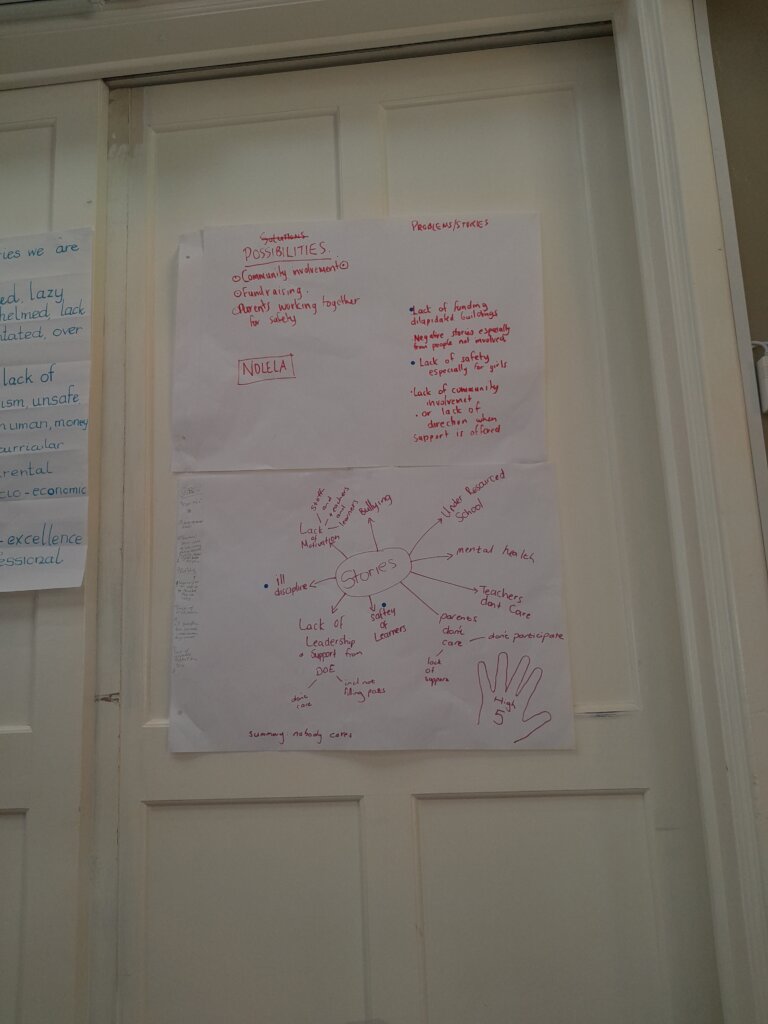 ies we are
ed, lazy
helmed, lack
tated, over
lack of
ism, unsafe
human, money
curricular
rental
cio-economic
-excellence
essional
Solutions
POSSIBILITIES.
Community involvement
Fundraising.
Parents working together
for safety
NOLELA
PROBLEMS/STORIES
Lack of funding
dilapidated buildings
Negative stories especially
from people not involved
Lack of safety
especially for girls
Lack of community
involvement
or lack of
direction when
support is offered
Stories
Staff
and
teachers
and
learners
Lack
of
Motivation
Bullying
Under Resourced
School
mental health
Teachers
dont Care
parents
don't
care
don't participate
lack
of
support
saftey
of
Learners
Lack of
Leadership
Support from
DOE
don't
care
incl not
filling posts
ill
discipline
High
5
summary: nobody cares